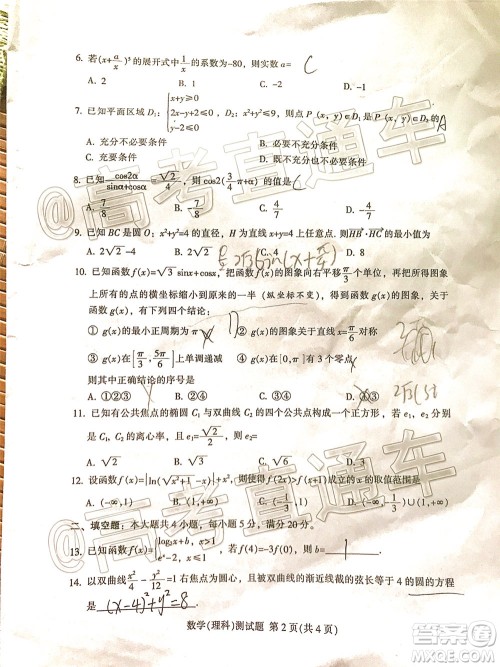 6. 若(x+a/x)⁵的展开式中1/x的系数为-80,则实数a= C
A. 2 B. 1 C. -2 D. -1
7. 已知平面区域 D₁: {x+y≥0 2x-y-2≤0, y-2≤0 D₂: x²+y²≤4, 则点 P (x, y)∈D₁是 P (x, y)∈D₂的 A
A. 充分不必要条件 B. 必要不充分条件
C. 充要条件
8. 已知cos2α/(sinα+cosα)=√2/4, 则 cos2(3/4π+α)的值是 C
A. 7/8 B. -7/8 C. -4/7 D. 4/7
9. 已知 BC 是圆 O: x²+y²=4 的直径, H 为直线x+y=4 上任意点, 则 HB·HC的最小值为
A. 2√2-4 B. 2√2 C. 4 D. 8
10. 已知函数 f(x)=√3sinx+cosx, 把函数 f(x)的图象向右平移π/3个单位, 再把图象
上所有的点的横坐标缩小到原来的一半 (纵坐标不变), 得到函数 g(x)的图象, 关于
函数 g(x), 有下列四个结论:
① g(x)的最小正周期为π ② g(x)的图象关于直线x=π/6对称
③ g(x)在[π/3, 5π/6]上单调递减 ④ g(x)在[0, π]有 3 个零点
则其中正确结论的序号是
A. ①②③ B. ②③ C. ①③ D. ①③④
11. 已知有公共焦点的椭圆 C₁与双曲线 C₂的四个公共点构成一个正方形, 若 e₁, e₂分
别是 C₁与 C₂的离心率, 且 e₁=√2/2, 则 e₂=
A. √2/2 B. √2 C. √3/2 D. √3
12. 设函数 f(x)=|ln(√(x²+1)-x)|,
A. (-∞, 1) B. (-∞, 1] C. (-∞, 2) D. (-∞, 2]
二、填空题: 本大题共 4 小题, 每小题 5 分, 满分 20 分.
13. 已知函数 f(x)={log₃x+b, x>1 eˣ-2, x≤1
若 f(3)=f(0), 则 b= 1
14. 以双曲线x²/4-y²/12=1 右焦点为圆心, 且被双曲线的渐近线截的弦长等于 4 的圆的方程
是 (x-4)²+y²=8
数学(理科)测试题 第 2 页(共 4 页)
高考直通车